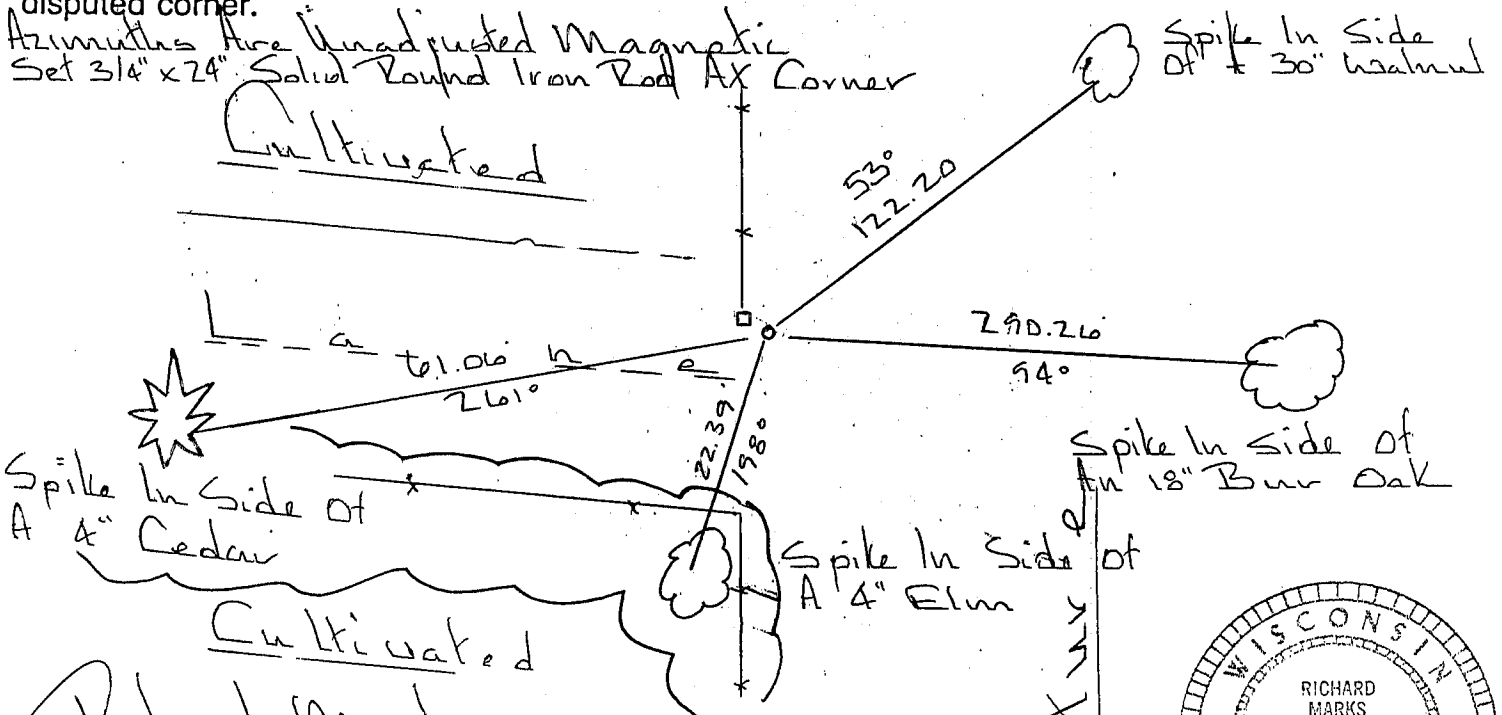 disputed corner.
Azimuths Are Unadjusted Magnetic
Set 3/4" x 24" Solid Round Iron Rod At Corner
Spike In Side
Of ± 30" Walnut
Cultivated
53°
122.20
290.26
94°
Lane
61.06
261°
22.39
198°
Spike In Side Of
An 18" Burr Oak
Spike In Side Of
A 4" Cedar
Spike In Side Of
A 4" Elm
Cultivated
WISCONSIN
RICHARD
MARKS